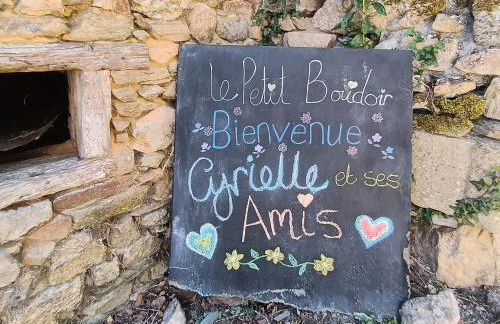 Le Petit Boudoir
Bienvenue
Cyrielle et ses
Amis